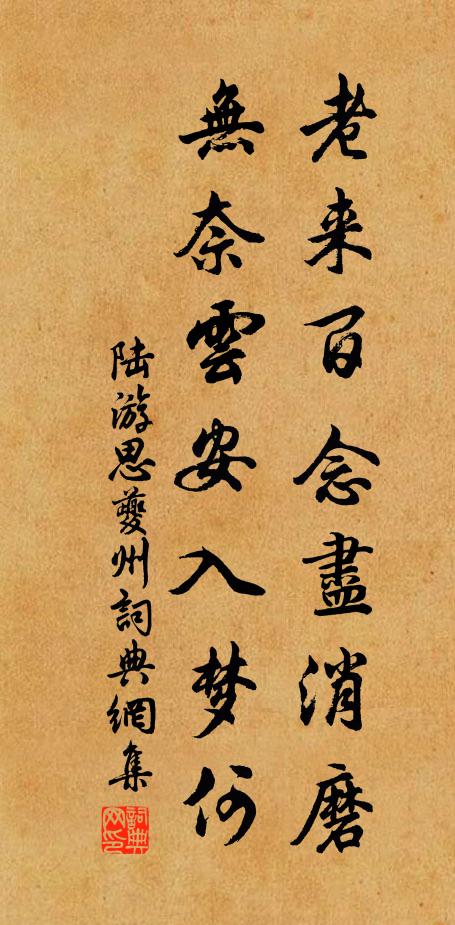 老来百念盡消磨
無奈雲安入梦何
陆游思夔州詞典網集
詞典网印